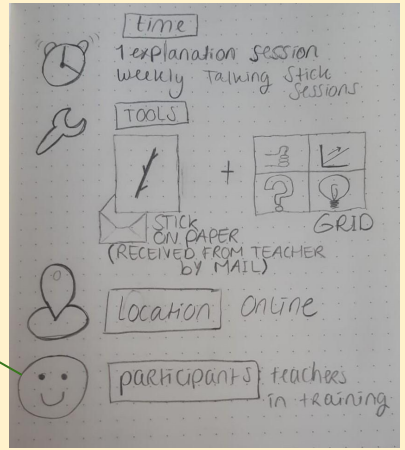 time
1 explanation session
weekly Talking Stick
Sessions
TOOLS
+
?
STICK
ON PAPER
GRID
(RECEIVED FROM TEACHER
by MAIL)
location Online
participants teachers
in training